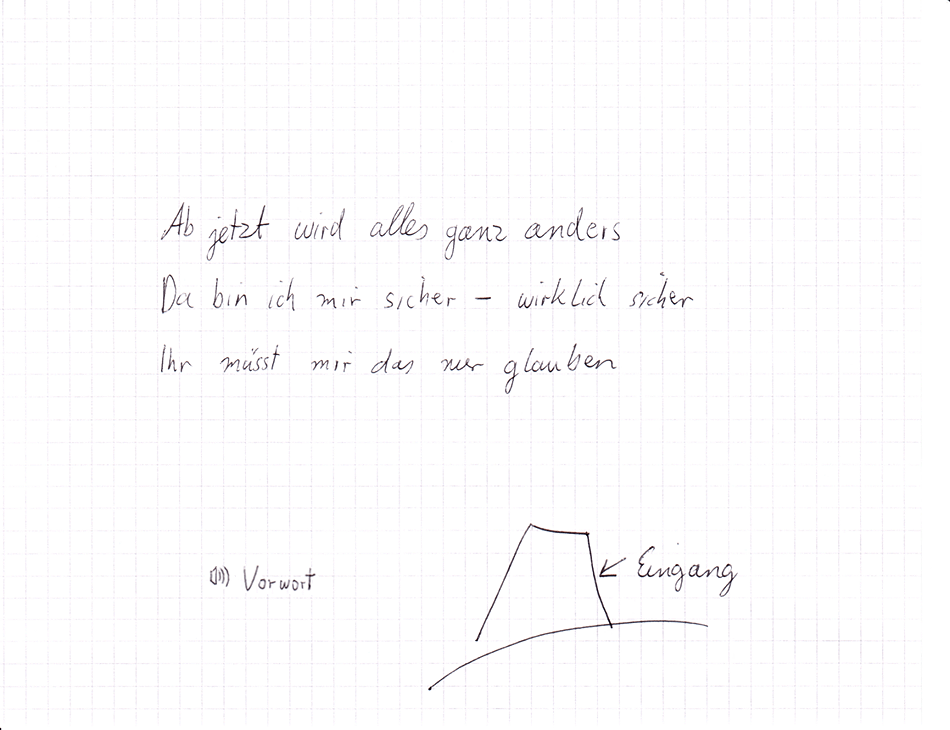 Ab jetzt wird alles ganz anders
Da bin ich mir sicher – wirklich sicher
Ihr müsst mir das nur glauben
Vorwort
Eingang